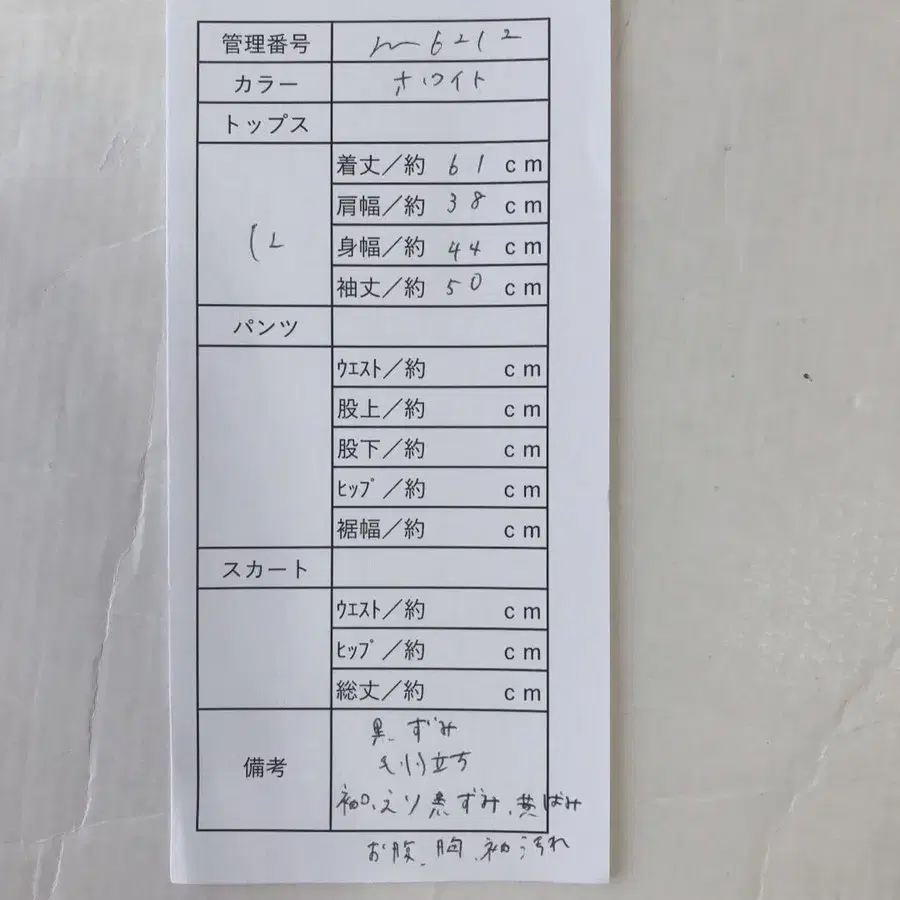 管理番号 m6212
カラー ホワイト
トップス
着丈／約 61 cm
肩幅／約 38 cm
(L 身幅／約 44 cm
袖丈／約 50 cm
パンツ
ｳｴｽﾄ／約 cm
股上／約 cm
股下／約 cm
ﾋｯﾌﾟ／約 cm
裾幅／約 cm
スカート
ｳｴｽﾄ／約 cm
ﾋｯﾌﾟ／約 cm
総丈／約 cm
黒ずみ
備考 毛羽立ち
袖口、えり黒ずみ、黄ばみ
お腹、胸、袖汚れ